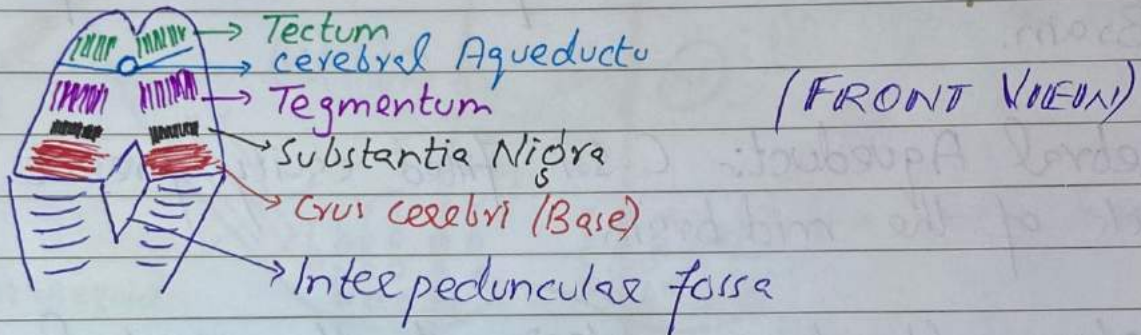 Tectum
cerebral Aqueductu
Tegmentum
(FRONT VIEW)
Substantia Nigra
Crus cerebri (Base)
Interpeduncular fossa